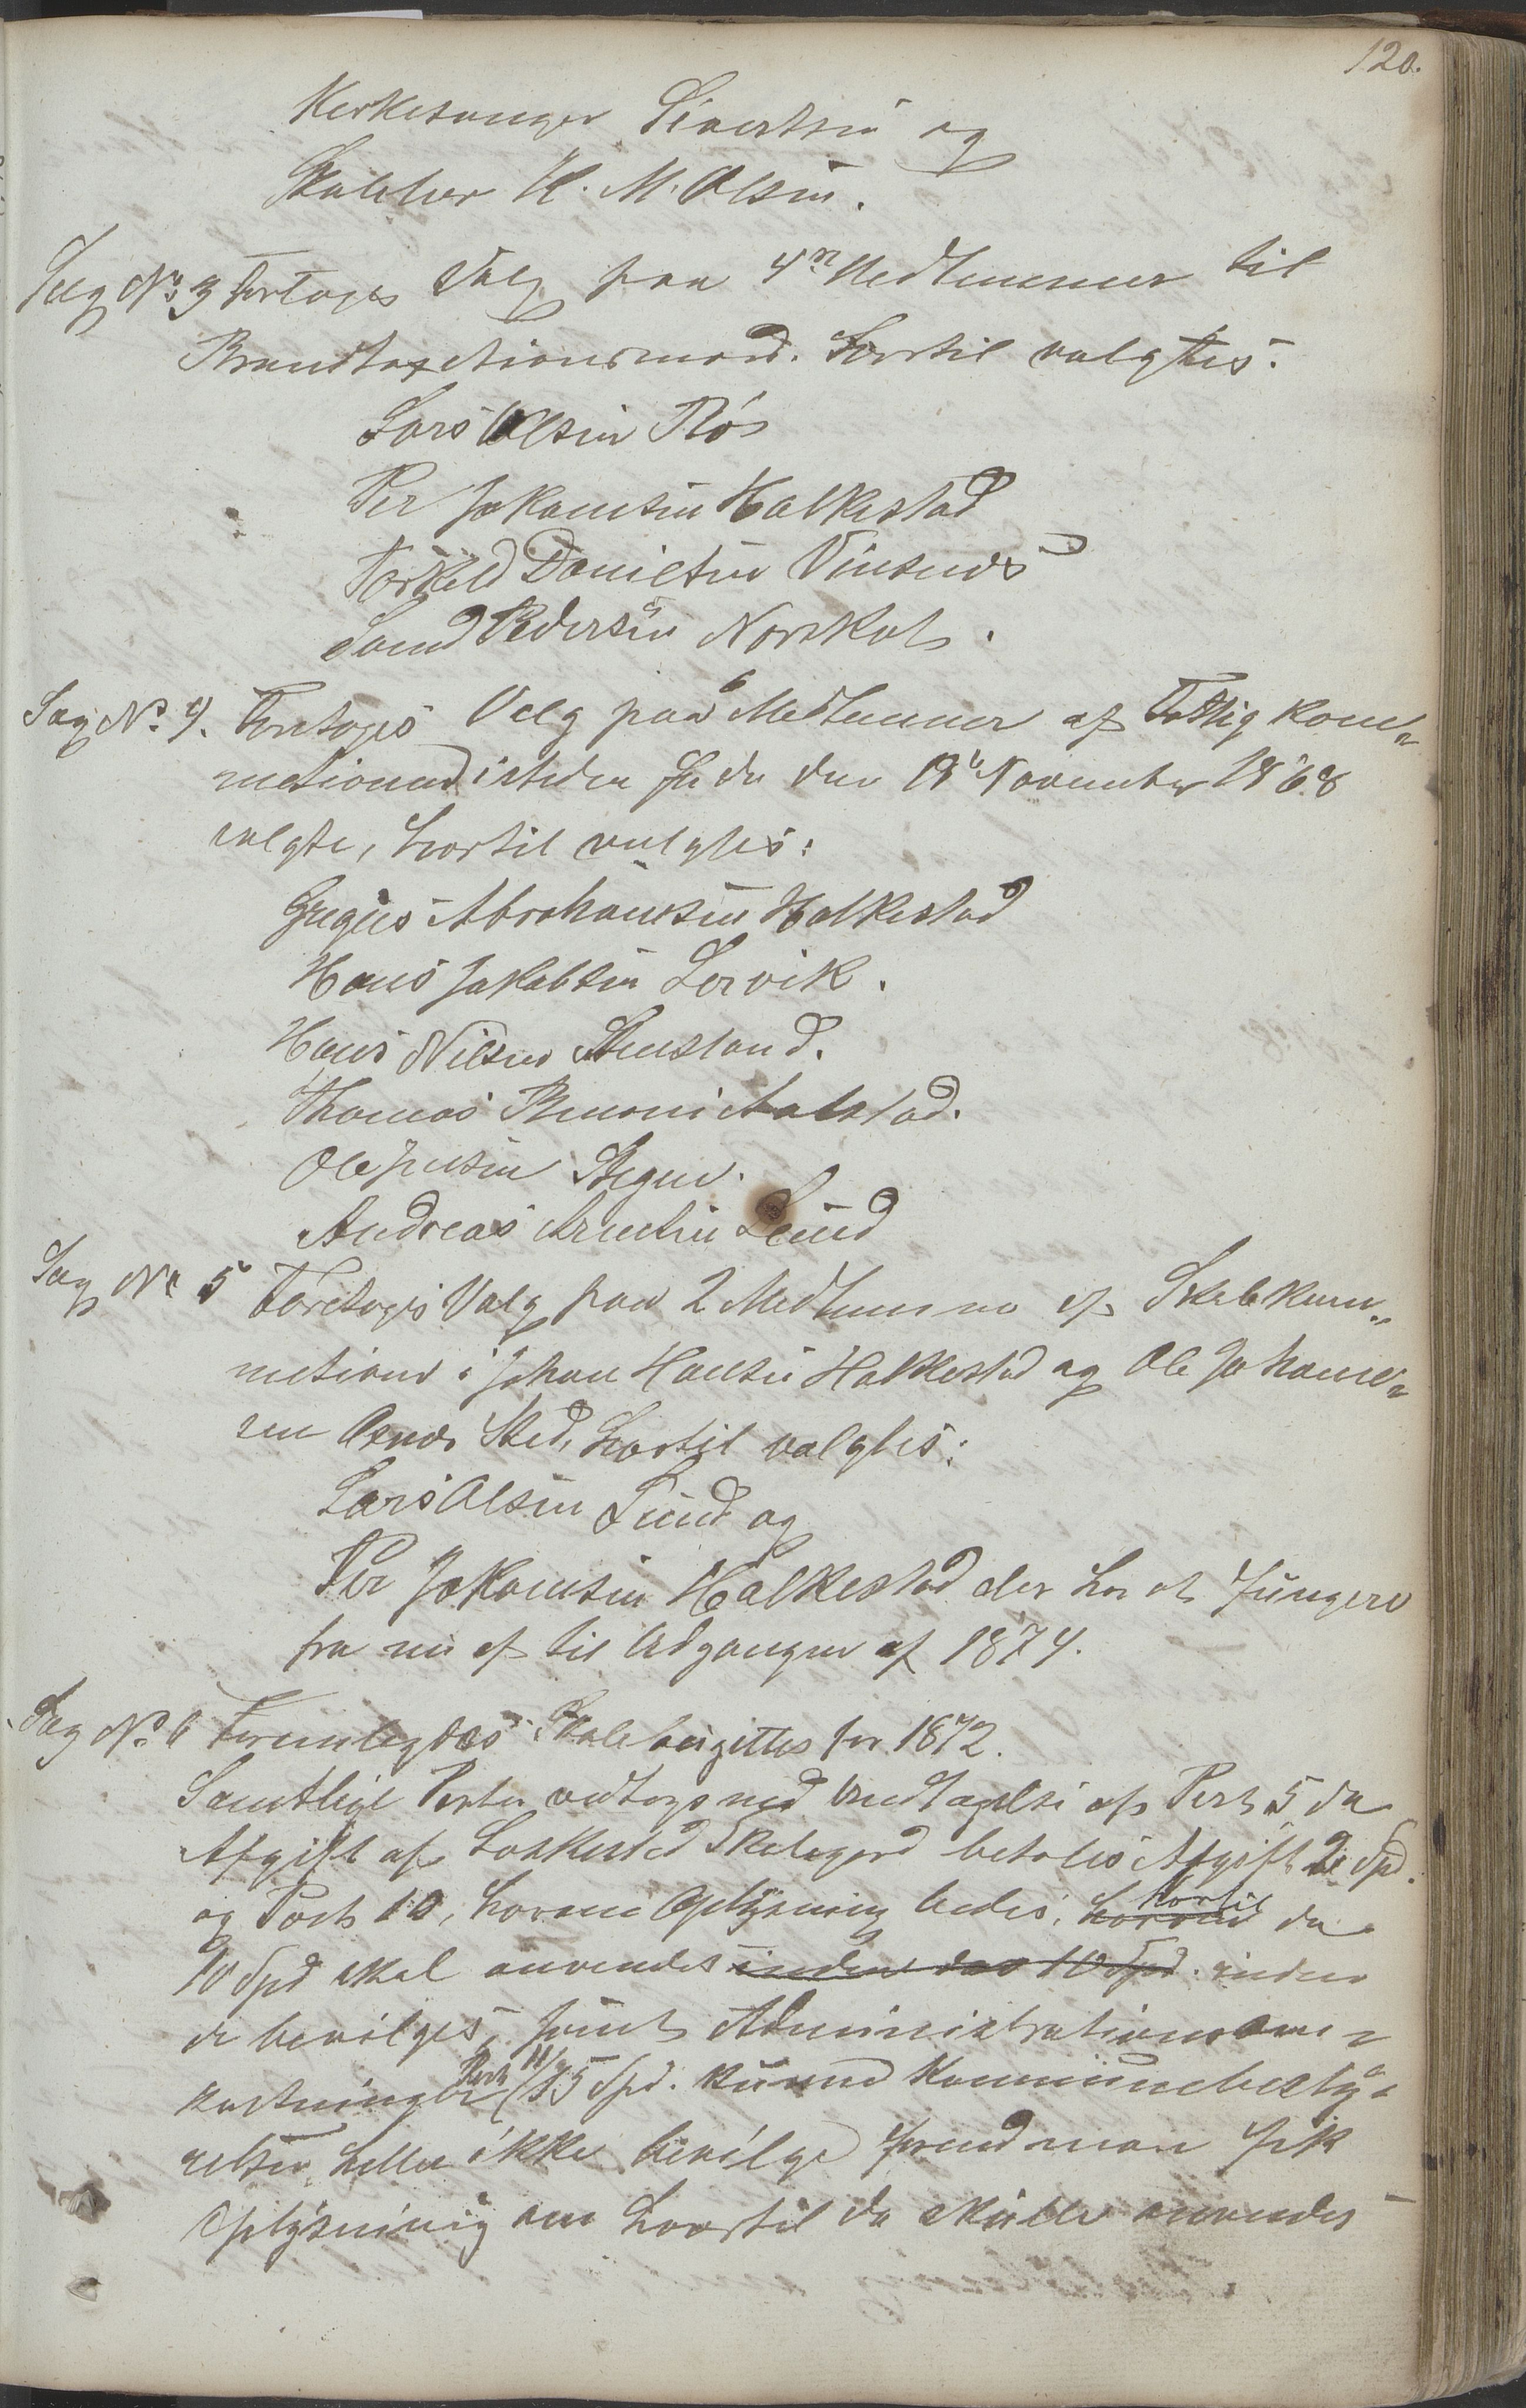 120.
Kirkesanger Sivertsen og
Skolelær H. M. Olsen.
Sag No 3 Foretoges Valg paa 4re Medlemmer til
Brandtaxtionsmænd. Hertil valgtes:
Lars Olsen Røs
Per Johansen Holkestad
Torkild Danielsen Vinsnes
Sund Pedersen Norskot.
Sag No 4. Foretoges Valg paa 6 Medlemmer af Fattigkom„
missionen istedenfor de den 19de November 1868
valgte, hvortil valgtes:
Gregus Abrahamsen Holkestad
Hans Jakobsen Lervik.
Hans Nilsen Stensland.
Thomas Benoni Aalstad.
Ole Jensen Stegen.
Andreas Arntsen Lund
Sag No 5 Foretoges Valg paa 2 Medlemmer af Skolekom„
missionen i Johan Hansen Holkestad og Ole Johann„
sen Sted, hvortil valgtes:
Lars Olsen Lund og
Per Johansen Holkestad der har at fungere
fra nu af til Udgangen af 1874.
Sag No 6 Fremlagdes Skolebudgettet for 1872.
Samtlige Poster vedtoges med Undtagelse af Post 5 da
Afgift af Skolegaard betales Afgift 2 Spd.
og Post 10, hvorom Oplysning bedes, hvorved hvortil de
10 Spd skal anvendes inden de 10 Spd. inden
de bevilges, samt Administrationsom„
kostninger Post 11/ 15 Spd. kunne Kommunebesty„
relsen heller ikke bevilge førend man fik
Oplysning om hvortil de skulle anvendes